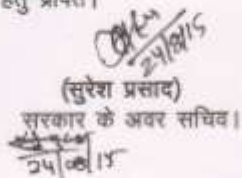 हेतु प्रेषित।
24/8/15
(सुरेश प्रसाद)
सरकार के अवर सचिव।
24/08/15